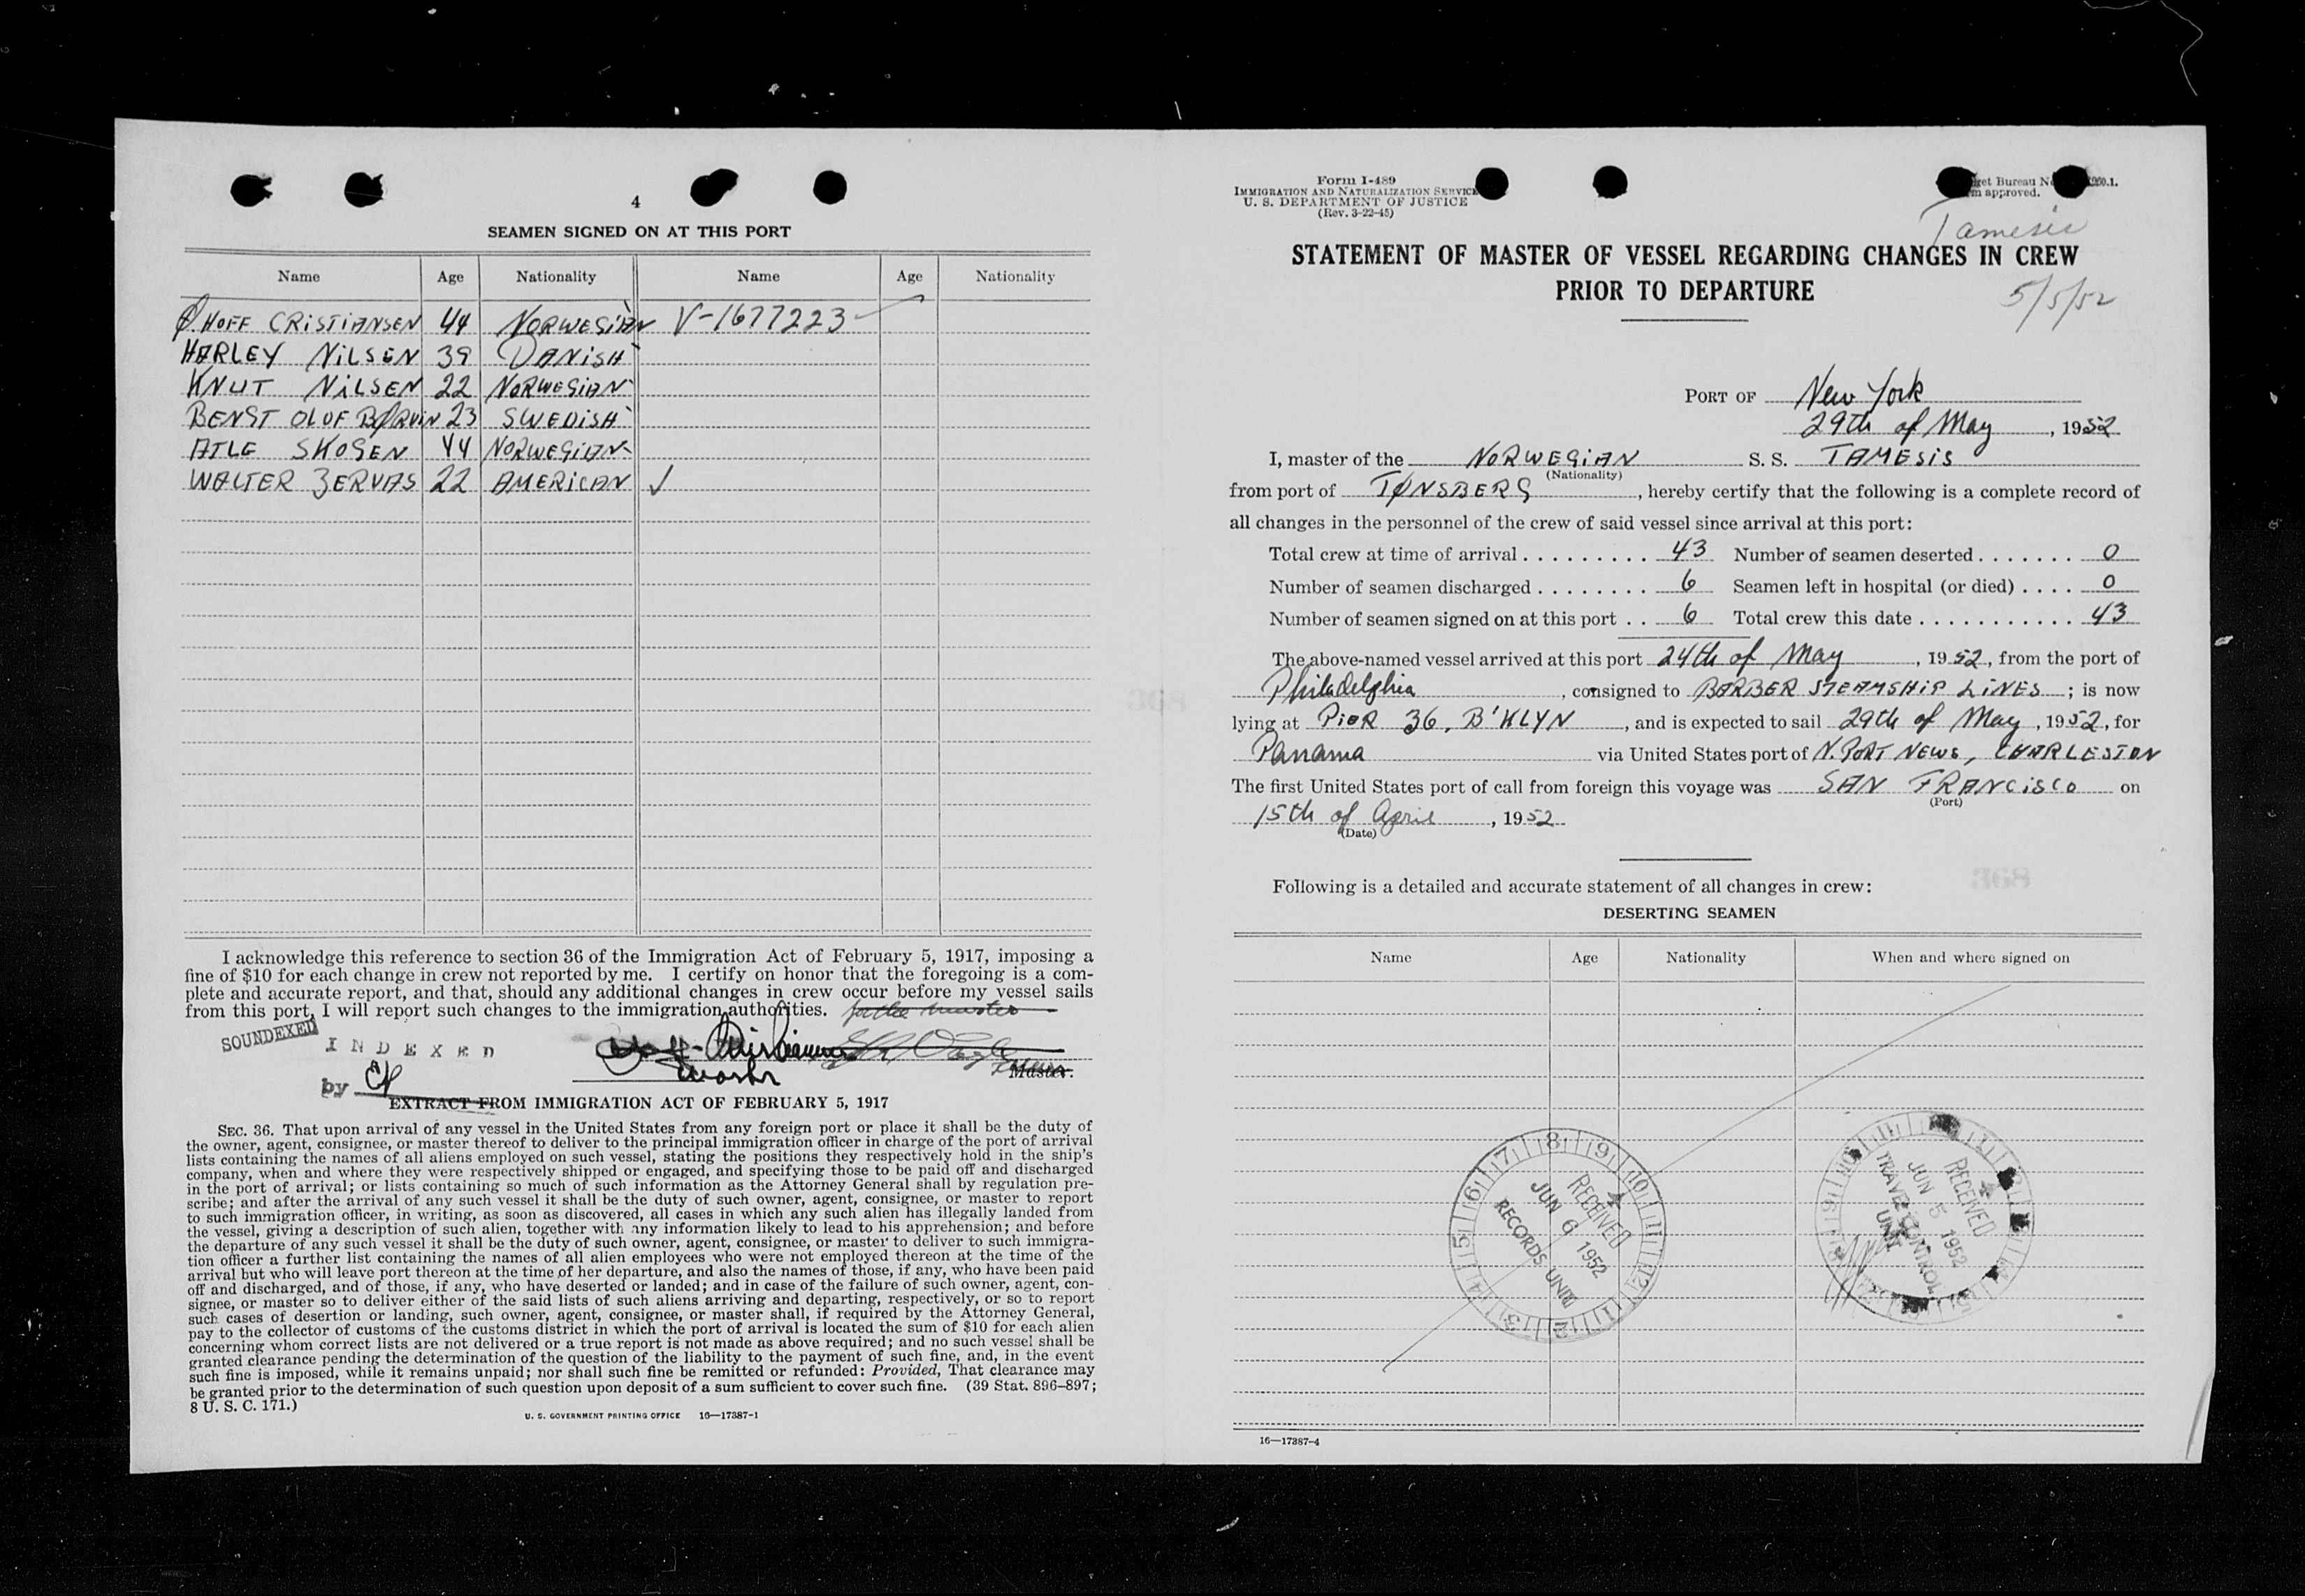 4
SEAMEN SIGNED ON AT THIS PORT
Name Age Nationality Name Age Nationality
Ø. HOFF CRISTIANSEN 44 NORWEGIAN V-1677223
HARLEY NILSEN 39 DANISH
KNUT NILSEN 22 NORWEGIAN
BENGT OLOF BØRVIN 23 SWEDISH
ATLE SKOGEN 44 NORWEGIAN
WALTER ZERVAS 22 AMERICAN ✓
I acknowledge this reference to section 36 of the Immigration Act of February 5, 1917, imposing a
fine of $10 for each change in crew not reported by me. I certify on honor that the foregoing is a com-
plete and accurate report, and that, should any additional changes in crew occur before my vessel sails
from this port, I will report such changes to the immigration authorities. for the master
SOUNDEXED
INDEXED
by
Master.
EXTRACT FROM IMMIGRATION ACT OF FEBRUARY 5, 1917
SEC. 36. That upon arrival of any vessel in the United States from any foreign port or place it shall be the duty of
the owner, agent, consignee, or master thereof to deliver to the principal immigration officer in charge of the port of arrival
lists containing the names of all aliens employed on such vessel, stating the positions they respectively hold in the ship's
company, when and where they were respectively shipped or engaged, and specifying those to be paid off and discharged
in the port of arrival; or lists containing so much of such information as the Attorney General shall by regulation pre-
scribe; and after the arrival of any such vessel it shall be the duty of such owner, agent, consignee, or master to report
to such immigration officer, in writing, as soon as discovered, all cases in which any such alien has illegally landed from
the vessel, giving a description of such alien, together with any information likely to lead to his apprehension; and before
the departure of any such vessel it shall be the duty of such owner, agent, consignee, or master to deliver to such immigra-
tion officer a further list containing the names of all alien employees who were not employed thereon at the time of the
arrival but who will leave port thereon at the time of her departure, and also the names of those, if any, who have been paid
off and discharged, and of those, if any, who have deserted or landed; and in case of the failure of such owner, agent, con-
signee, or master so to deliver either of the said lists of such aliens arriving and departing, respectively, or so to report
such cases of desertion or landing, such owner, agent, consignee, or master shall, if required by the Attorney General,
pay to the collector of customs of the customs district in which the port of arrival is located the sum of $10 for each alien
concerning whom correct lists are not delivered or a true report is not made as above required; and no such vessel shall be
granted clearance pending the determination of the question of the liability to the payment of such fine, and, in the event
such fine is imposed, while it remains unpaid; nor shall such fine be remitted or refunded: Provided, That clearance may
be granted prior to the determination of such question upon deposit of a sum sufficient to cover such fine. (39 Stat. 896–897;
8 U. S. C. 171.)
U. S. GOVERNMENT PRINTING OFFICE 16—17387-1
Form I-489
IMMIGRATION AND NATURALIZATION SERVICE
U. S. DEPARTMENT OF JUSTICE
(Rev. 3-22-45)
Bureau
approved.
Tamesis
STATEMENT OF MASTER OF VESSEL REGARDING CHANGES IN CREW
PRIOR TO DEPARTURE
5/5/52
PORT OF New York
29th of May, 1952
I, master of the NORWEGIAN S. S. TAMESIS
(Nationality)
from port of TØNSBERG, hereby certify that the following is a complete record of
all changes in the personnel of the crew of said vessel since arrival at this port:
Total crew at time of arrival . . . . . . . . . 43 Number of seamen deserted . . . . . . . 0
Number of seamen discharged . . . . . . . . 6 Seamen left in hospital (or died) . . . . 0
Number of seamen signed on at this port . . 6 Total crew this date . . . . . . . . . . . 43
The above-named vessel arrived at this port 24th of May, 1952, from the port of
Philadelphia, consigned to BARBER STEAMSHIP LINES; is now
lying at PIER 36, B'KLYN, and is expected to sail 29th of May, 1952, for
Panama via United States port of N. PORT NEWS, CHARLESTON
The first United States port of call from foreign this voyage was SAN FRANCISCO on
(Port)
15th of April, 1952
(Date)
Following is a detailed and accurate statement of all changes in crew:
DESERTING SEAMEN
Name Age Nationality When and where signed on
RECEIVED
JUN 6 1952
RECORDS UNIT
RECEIVED
JUN 5 1952
TRAVEL CONTROL
UNIT
16—17387-4